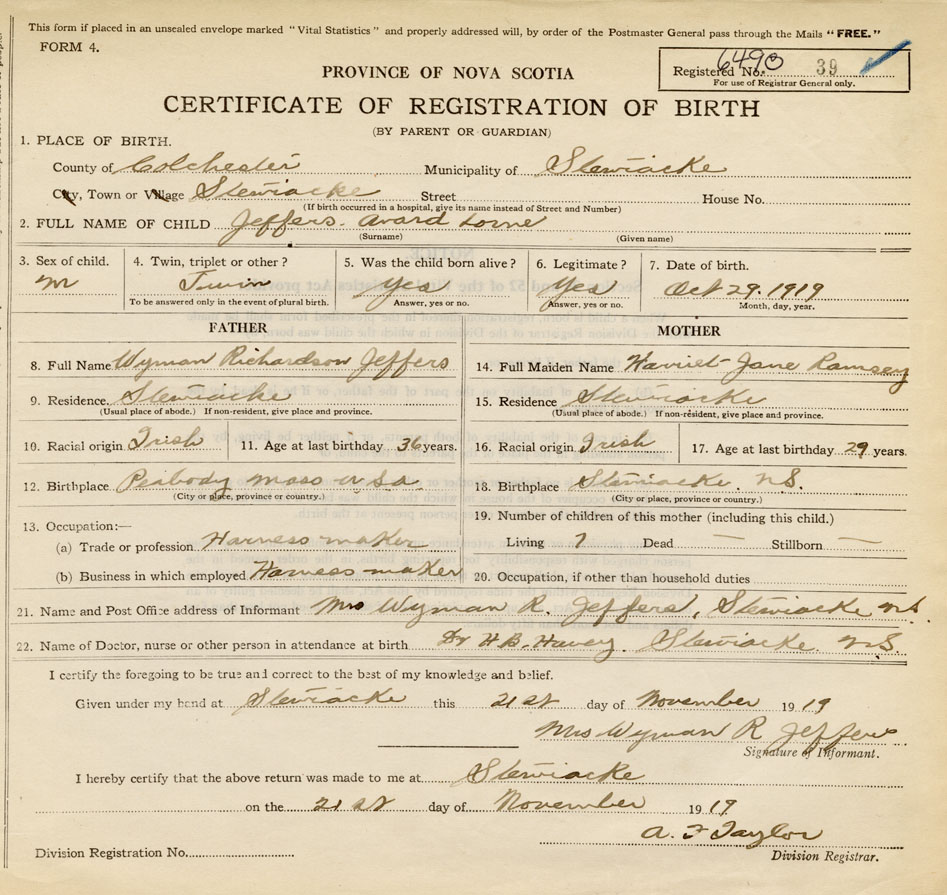 This form if placed in an unsealed envelope marked "Vital Statistics" and properly addressed will, by order of the Postmaster General pass through the Mails "FREE."
FORM 4.
Registered No. 6490 39
For use of Registrar General only.
PROVINCE OF NOVA SCOTIA
CERTIFICATE OF REGISTRATION OF BIRTH
(BY PARENT OR GUARDIAN)
1. PLACE OF BIRTH.
County of Colchester Municipality of Stewiacke
City, Town or Village Stewiacke Street House No.
(If birth occurred in a hospital, give its name instead of Street and Number)
2. FULL NAME OF CHILD Jeffers. Avard Lorne
(Surname) (Given name)
3. Sex of child. 4. Twin, triplet or other? 5. Was the child born alive? 6. Legitimate? 7. Date of birth.
M Twin Yes Yes Oct 29. 1919
To be answered only in the event of plural birth. Answer, yes or no. Answer, yes or no. Month, day, year.
FATHER MOTHER
8. Full Name Wyman Richardson Jeffers 14. Full Maiden Name Harriet Jane Ramsey
9. Residence. Stewiacke 15. Residence Stewiacke
(Usual place of abode.) If non-resident, give place and province. (Usual place of abode.) If non-resident, give place and province.
10. Racial origin Irish 11. Age at last birthday 36 years. 16. Racial origin Irish 17. Age at last birthday 29 years.
12. Birthplace Peabody Mass USA 18. Birthplace Stewiacke. N.S.
(City or place, province or country.) (City or place, province or country.)
13. Occupation:— 19. Number of children of this mother (including this child.)
(a) Trade or profession Harness maker Living 7 Dead — Stillborn —
(b) Business in which employed Harness maker 20. Occupation, if other than household duties
21. Name and Post Office address of Informant Mrs Wyman R. Jeffers, Stewiacke N.S.
22. Name of Doctor, nurse or other person in attendance at birth Dr H.B. Stewiacke. N.S.
I certify the foregoing to be true and correct to the best of my knowledge and belief.
Given under my hand at Stewiacke this 21st day of November 1919
Mrs Wyman R Jeffers
Signature of Informant.
I hereby certify that the above return was made to me at Stewiacke
on the 21st day of November 1919
A. F Taylor
Division Registration No. Division Registrar.